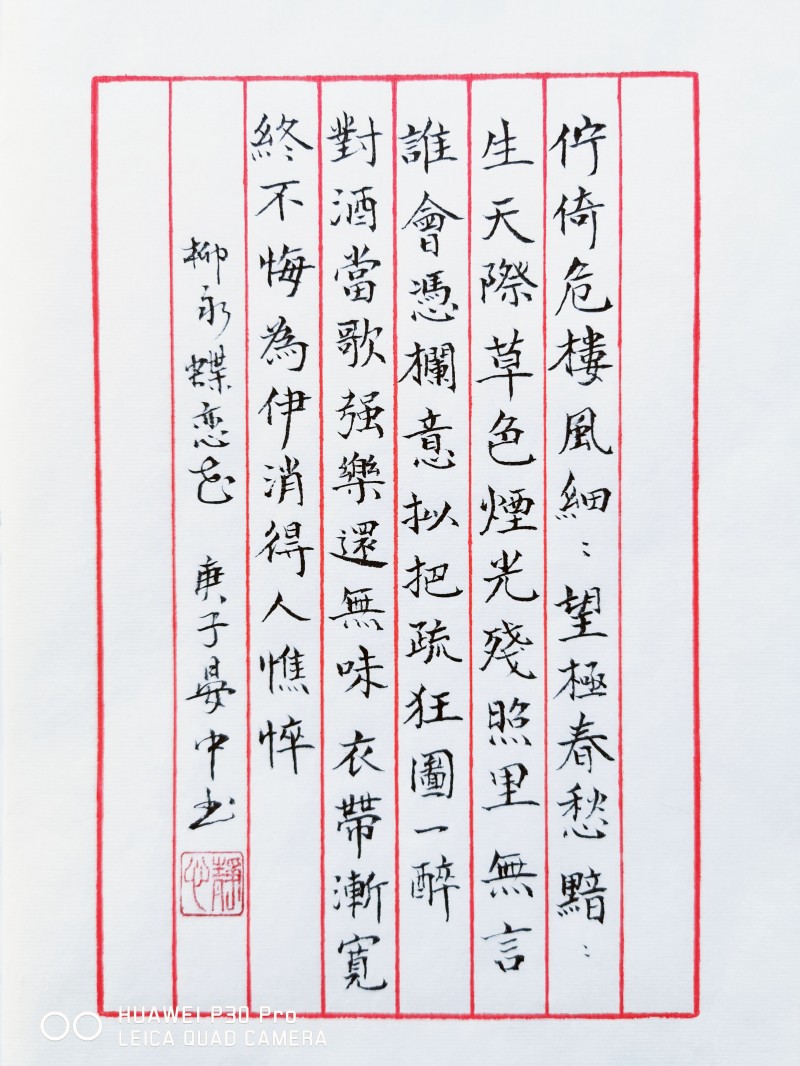 佇倚危樓風細：望極春愁黯：
生天際草色煙光殘照里無言
誰會憑欄意拟把疏狂圖一醉
對酒當歌强樂還無味衣帶漸寬
終不悔為伊消得人憔悴
柳永蝶恋花 庚子晏中书
靜心
HUAWEI P30 Pro
LEICA QUAD CAMERA